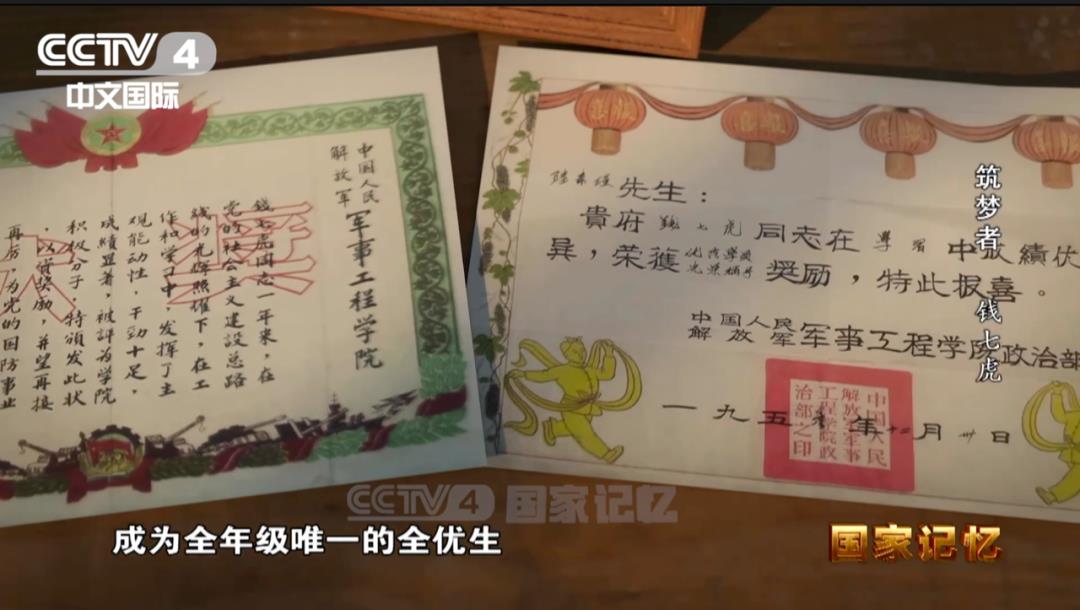 CCTV 4
中文国际
中国人民
解放军
军事工程学院
奖
钱七虎同志一年来，在
党的社会主义建设总路
线的光辉照耀下，在工
作和学习中，发挥了主
观能动性，干劲十足，
成绩显著，被評为学院
积极分子，特頒发此状
，以資奖励，并望再接
再厉，为党的国防事业
先生：
貴府 錢七虎 同志在 學習 中成績优
異，荣獲 奬励，特此报喜。
中国人民
解放军
军事工程学院政治部
一九五 年 十二月 卅 日
中国人民
解放军军事
工程学院政
治部之印
筑梦者 钱七虎
CCTV4 国家记忆
成为全年级唯一的全优生
国家记忆